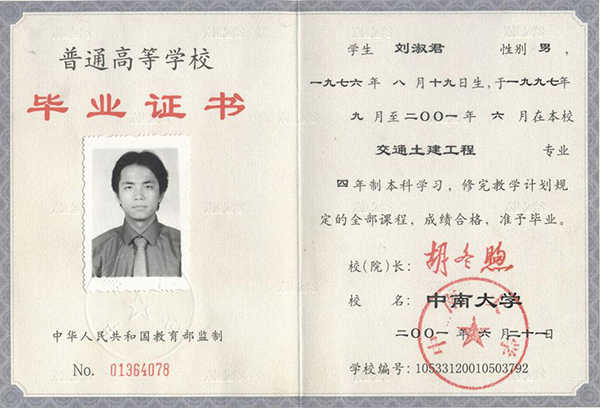 普通高等学校
毕业证书
中华人民共和国教育部监制
No. 01364078
学生 刘淑君 性别 男，
一九七六年 八 月十九日生，于一九九七年
九 月至二〇〇一年 六 月在本校
交通土建工程 专业
四 年制本科学习，修完教学计划规
定的全部课程，成绩合格，准予毕业。
校(院)长：胡冬煦
校 名：中南大学
二〇〇一 年 六 月二十一日
学校编号：10533120010503792